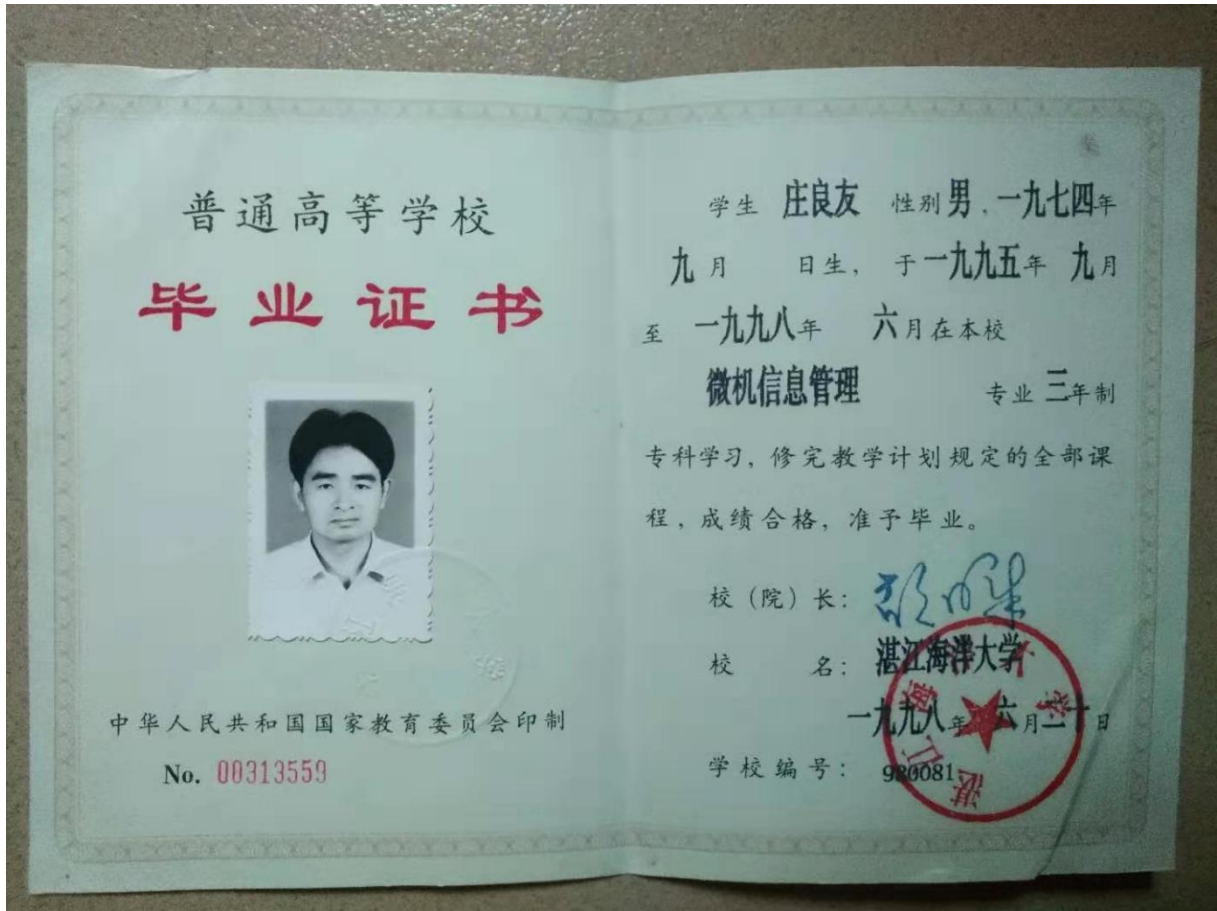 普通高等学校
毕业证书
中华人民共和国国家教育委员会印制
No. 00313559
学生 庄良友 性别 男，一九七四年
九月 日生，于一九九五年 九月
至 一九九八年 六月在本校
微机信息管理 专业 三年制
专科学习，修完教学计划规定的全部课
程，成绩合格，准予毕业。
校（院）长：
校 名：湛江海洋大学
一九九八年 六月二十日
学校编号：980081
湛江海洋大学